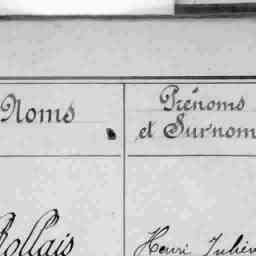 Noms
Prénoms
et Surnom
Henri Julien